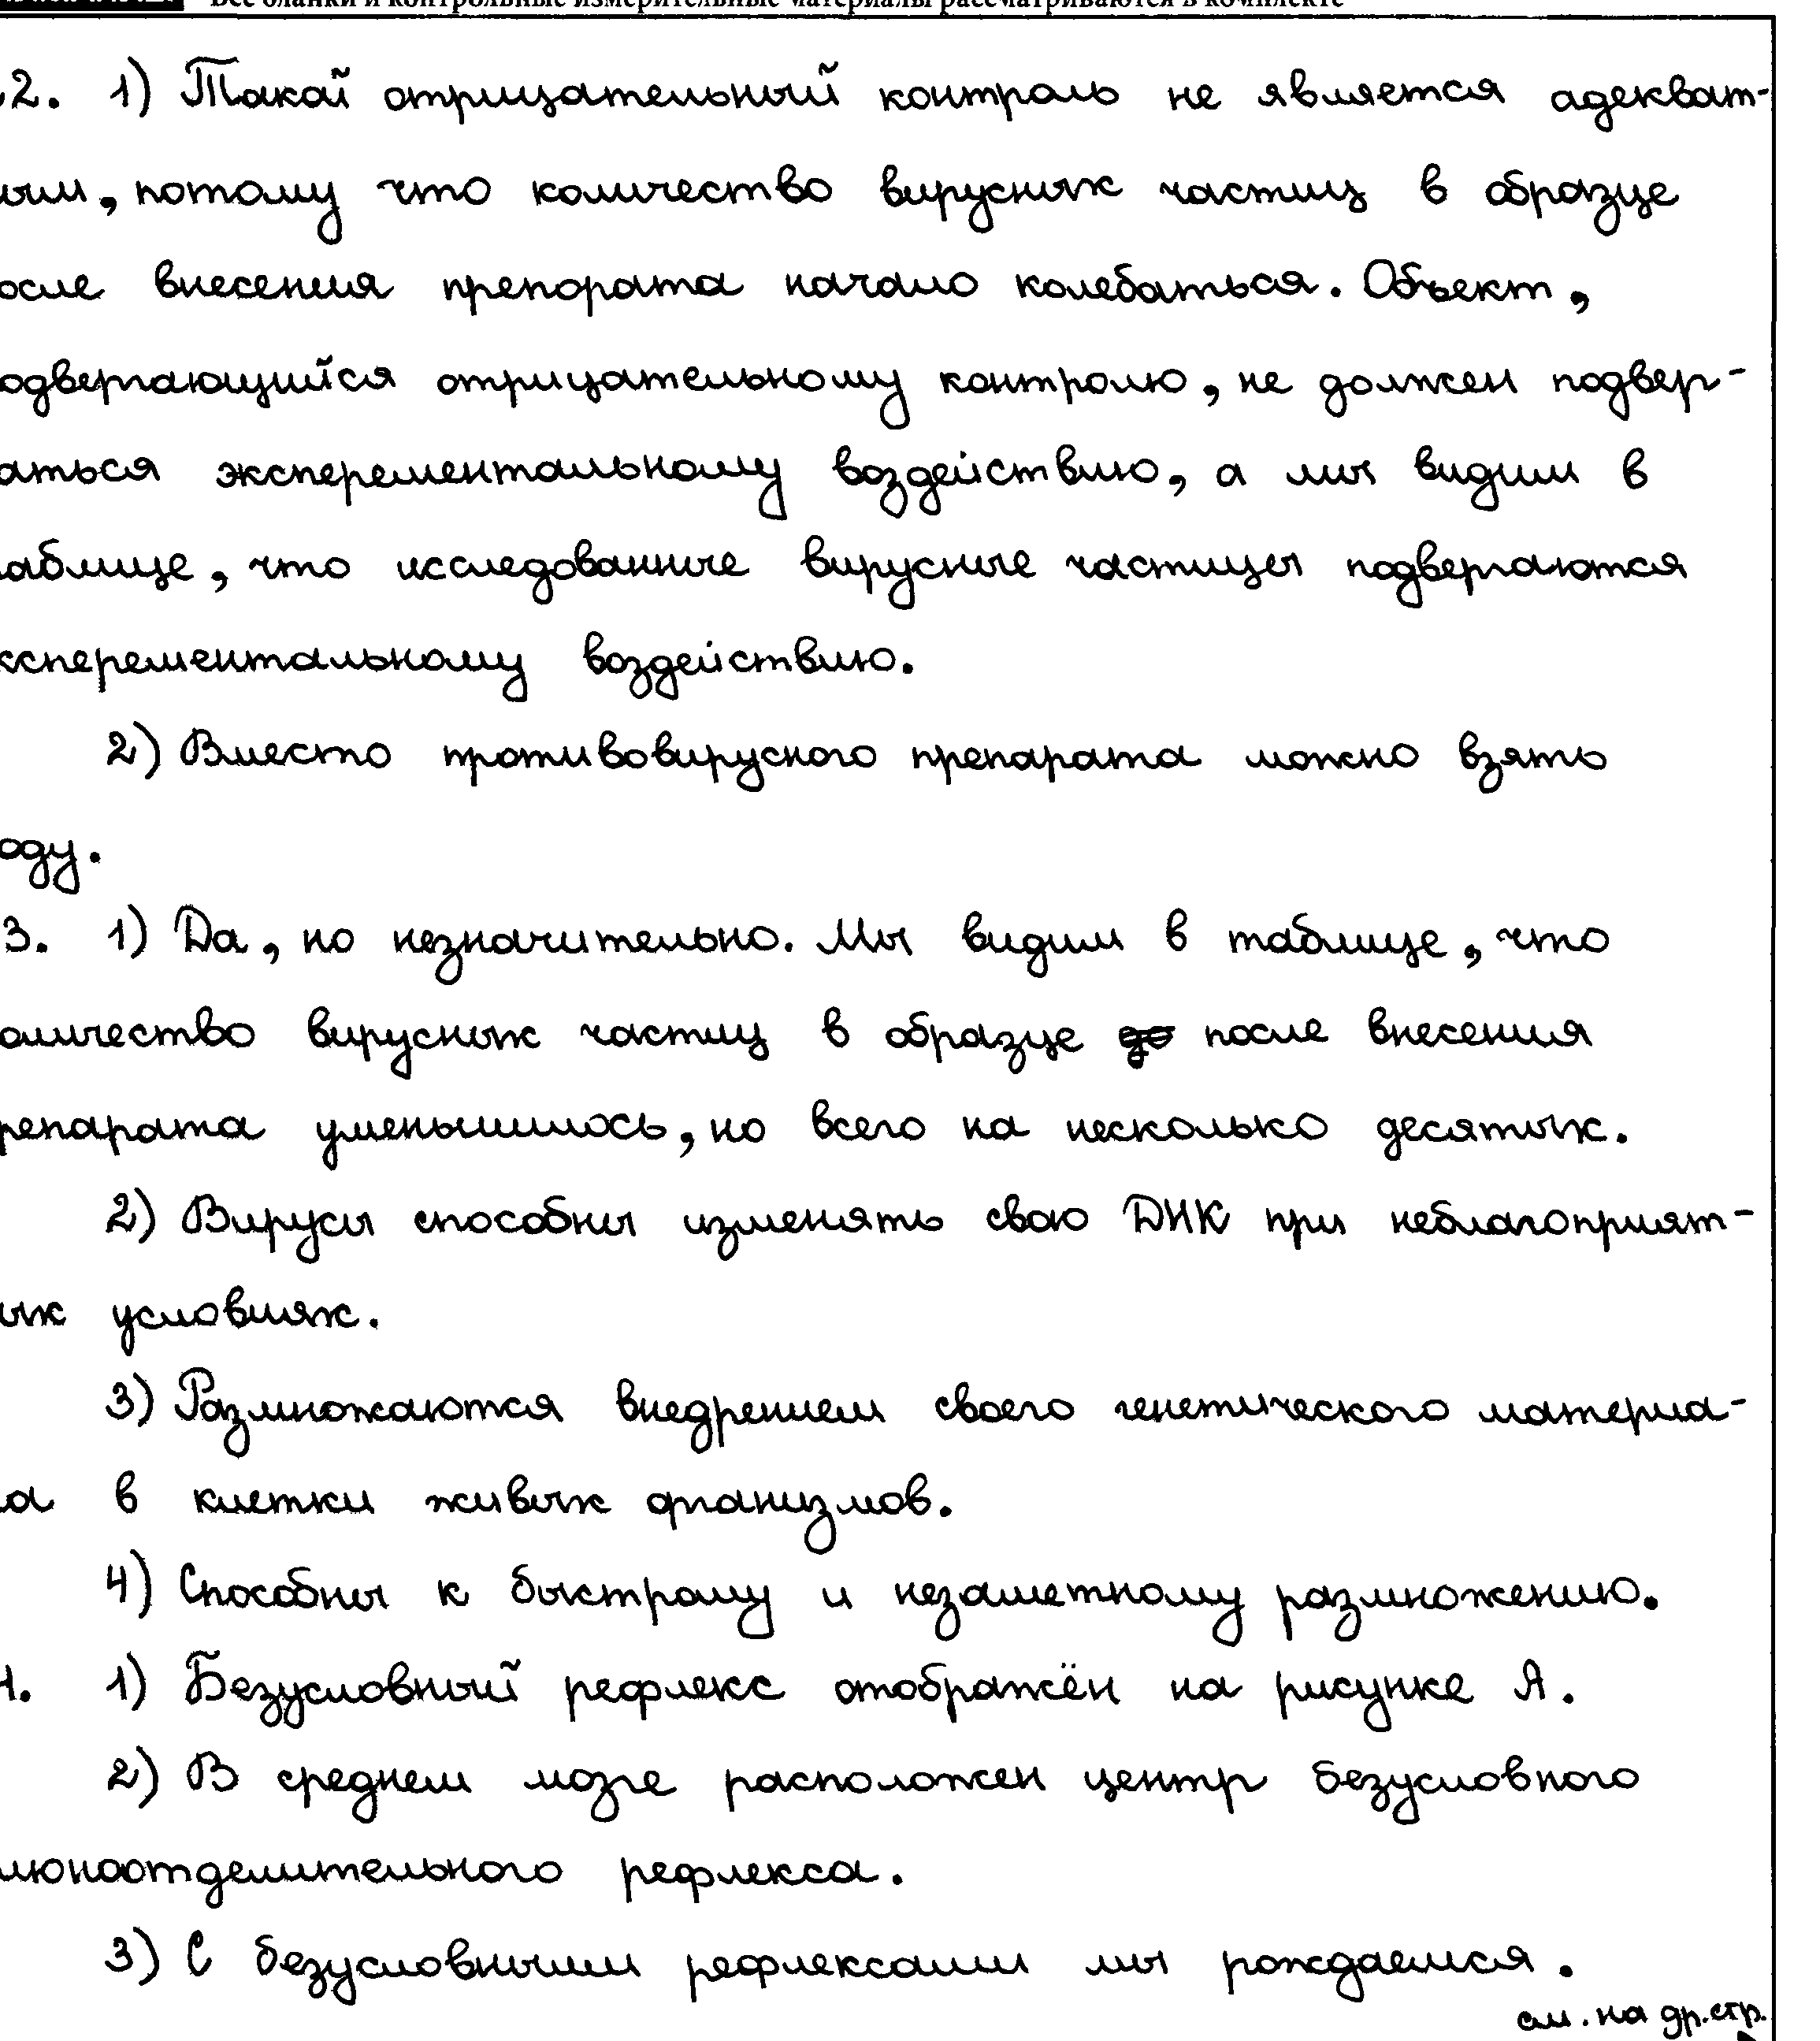 Все бланки и контрольные измерительные материалы рассматриваются в комплекте
2. 1) Такой отрицательный контроль не является адекват-
ным, потому что количество вирусных частиц в образце
осле внесения препората начало колебаться. Объект,
одвергающийся отрицательному контролю, не должен подвер-
аться эксперементальному воздействию, а мы видим в
аблице, что исследованные вирусные частицы подвергаются
ксперементальному воздействию.
2) Вместо противовирусного препарата можно взять
оду.
3. 1) Да, но незначительно. Мы видим в таблице, что
оличество вирусных частиц в образце до после внесения
репарата уменьшилось, но всего на несколько десятых.
2) Вирусы способны изменять свою ДНК при неблагоприят-
ых условиях.
3) Размножаются внедрением своего генетического материа-
ла в клетки живых организмов.
4) Способны к быстрому и незаметному размножению.
4. 1) Безусловный рефлекс отображён на рисунке А.
2) В среднем мозге расположен центр безусловного
люноотделительного рефлекса.
3) С безусловными рефлексами мы рождаемся.
см. на др. стр.